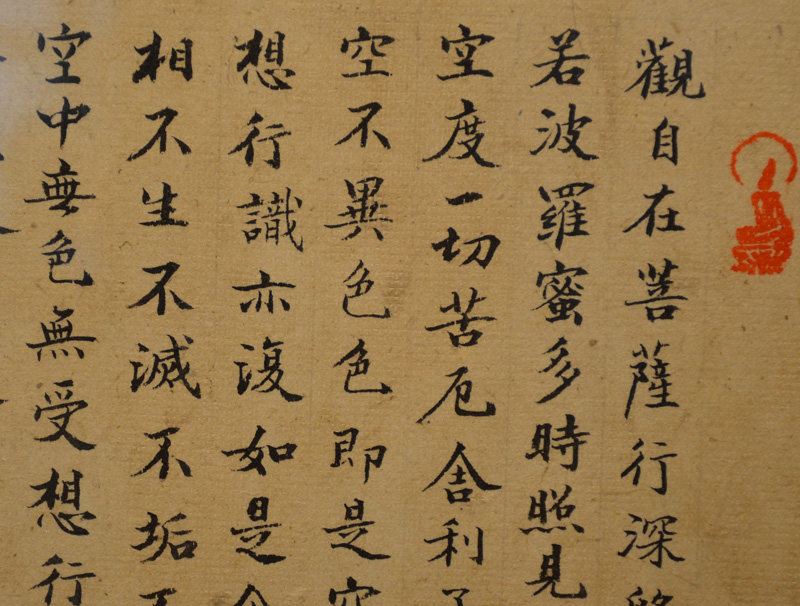 觀自在菩薩行深
若波羅蜜多時照見
空度一切苦厄舍利
空不異色色即是
想行識亦復如是
相不生不滅不垢
空中無色無受想行